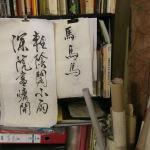 馬馬馬
輕陰閣小雨
深院晝慵開